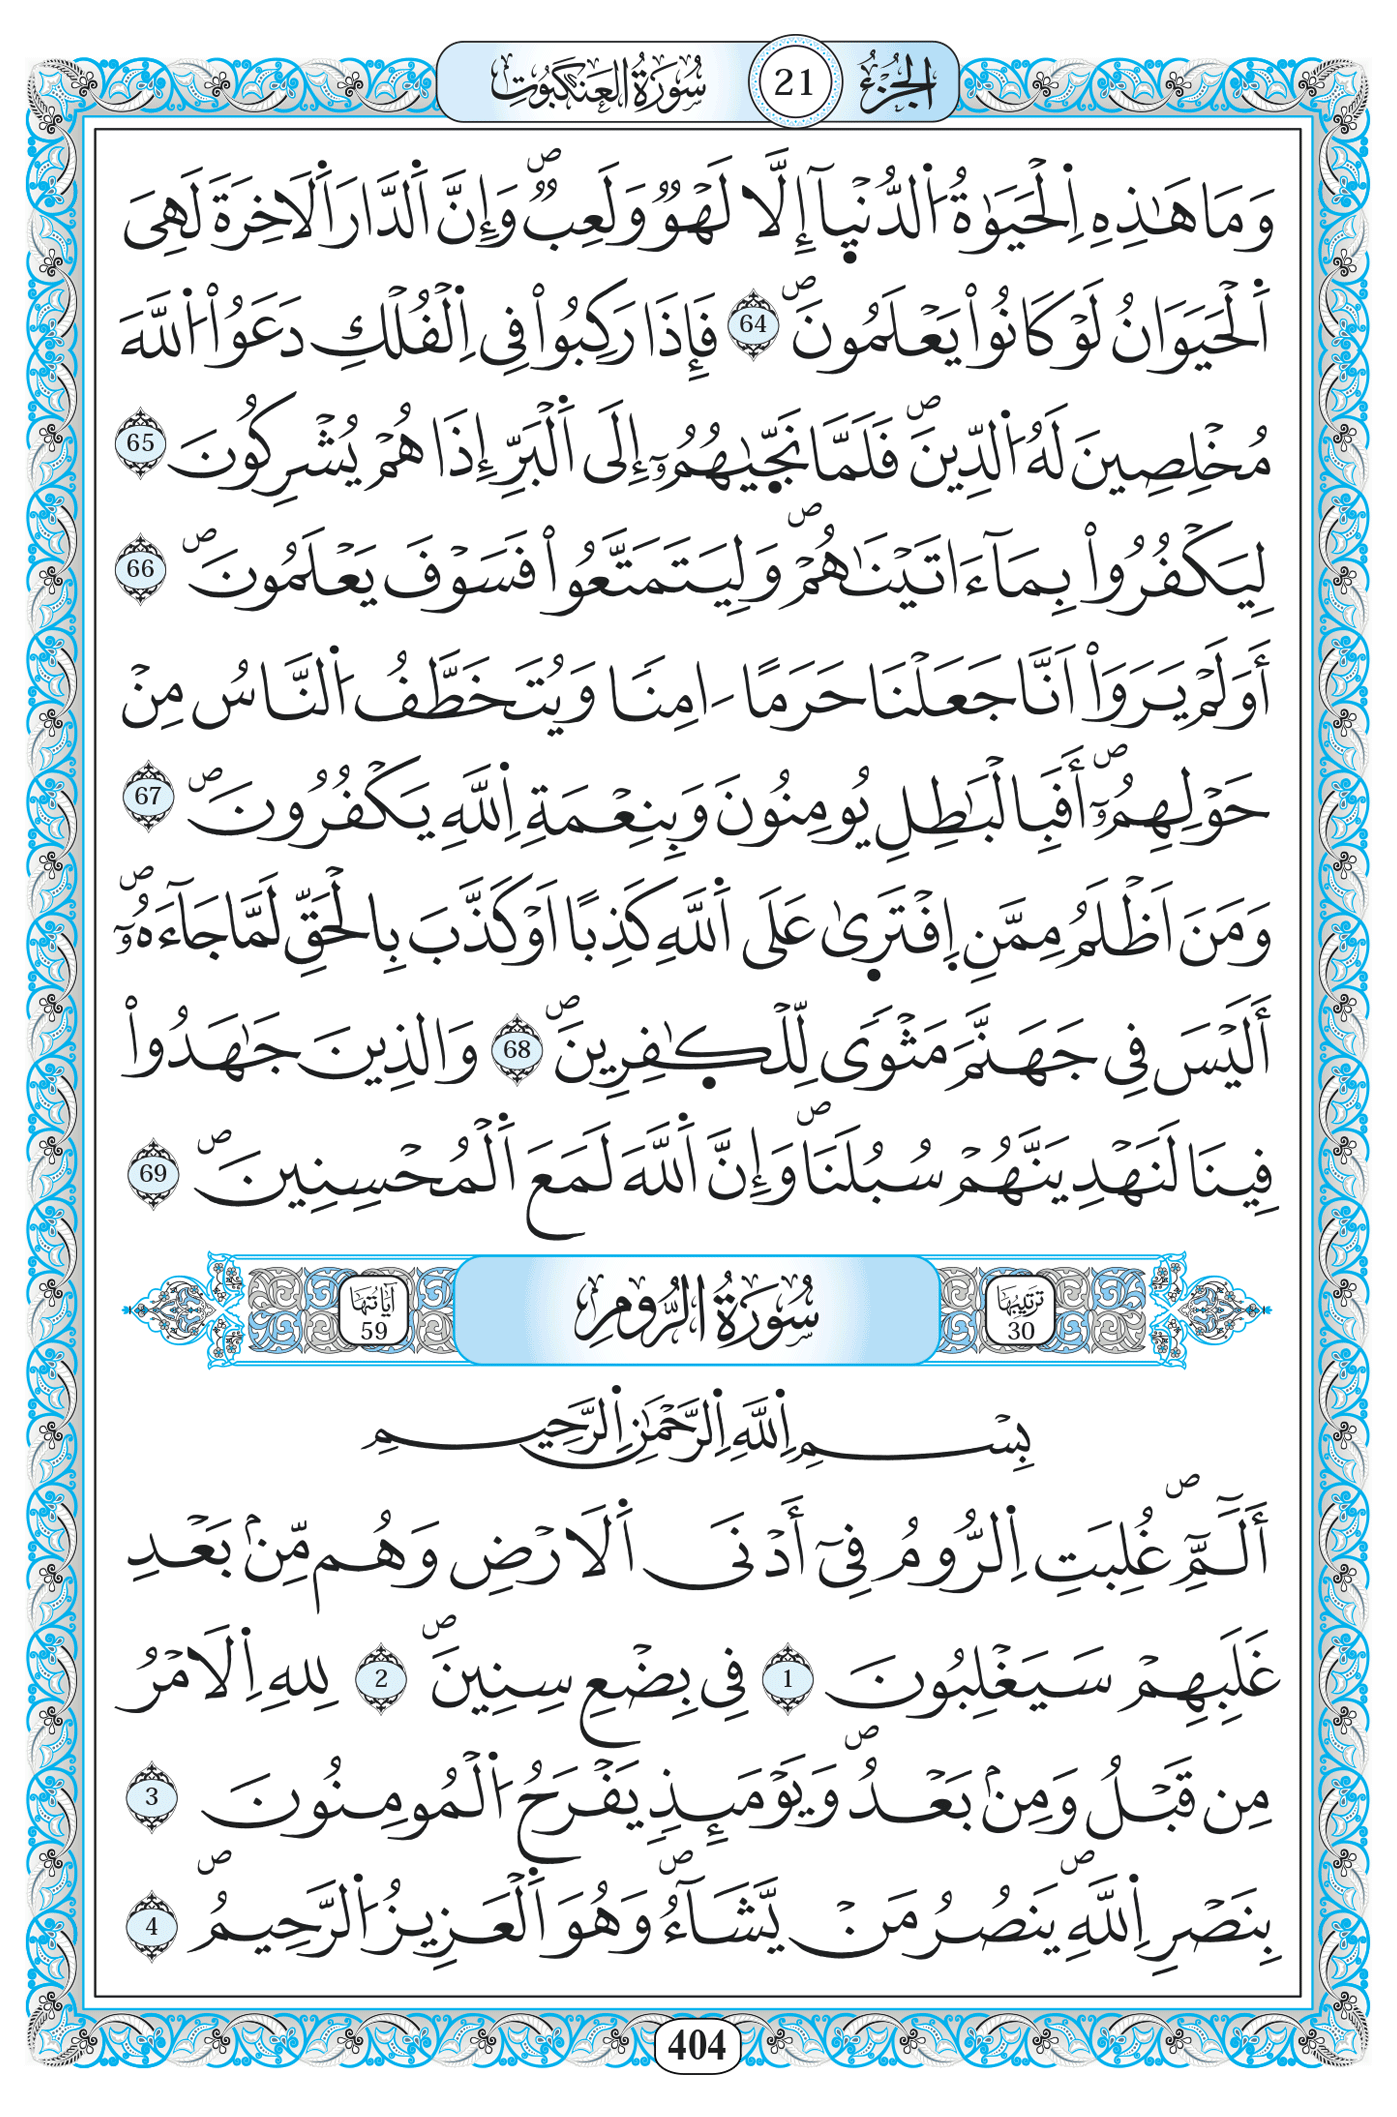 الجزء 21 سورة العنكبوت
وَمَا هَٰذِهِ اِ۬لْحَيَوٰةُ اُ۬لدُّنْي۪آ إِلَّا لَهْوٞ وَلَعِبٞۖ وَإِنَّ اَ۬لدَّارَ اَ۬لَاخِرَةَ لَهِيَ
اَ۬لْحَيَوَانُ لَوْ كَانُواْ يَعْلَمُونَۖ 64 فَإِذَا رَكِبُواْ فِي اِ۬لْفُلْكِ دَعَوُاْ اُ۬للَّهَ
مُخْلِصِينَ لَهُ اُ۬لدِّينَۖ فَلَمَّا نَجّ۪يٰهُمُۥٓ إِلَى اَ۬لْبَرِّ إِذَا هُمْ يُشْرِكُونَ 65
لِيَكْفُرُواْ بِمَآ ءَاتَيْنَٰهُمْۖ وَلِيَتَمَتَّعُواْ فَسَوْفَ يَعْلَمُونَۖ 66
أَوَلَمْ يَرَوَاْ اَنَّا جَعَلْنَا حَرَماً اٰمِناٗ وَيُتَخَطَّفُ اُ۬لنَّاسُ مِنْ
حَوْلِهِمُۥٓۖ أَفَبِالْبَٰطِلِ يُومِنُونَ وَبِنِعْمَةِ اِ۬للَّهِ يَكْفُرُونَۖ 67
وَمَنَ اَظْلَمُ مِمَّنِ اِ۪فْتَر۪ىٰ عَلَى اَ۬للَّهِ كَذِباً اَوْ كَذَّبَ بِالْحَقِّ لَمَّا جَآءَهُۥٓۖ
أَلَيْسَ فِي جَهَنَّمَ مَثْوىٗ لِّلْكٰ۪فِرِينَۖ 68 وَالذِينَ جَٰهَدُواْ
فِينَا لَنَهْدِيَنَّهُمْ سُبُلَنَاۖ وَإِنَّ اَ۬للَّهَ لَمَعَ اَ۬لْمُحْسِنِينَۖ 69
ترتيبها 30 سورة الروم آياتها 59
بِسْمِ اِ۬للَّهِ اِ۬لرَّحْمَٰنِ اِ۬لرَّحِيمِ
أَلَٓمِّٓۖ غُلِبَتِ اِ۬لرُّومُ فِيٓ أَدْنَى اَ۬لَارْضِ وَهُم مِّنۢ بَعْدِ
غَلَبِهِمْ سَيَغْلِبُونَ 1 فِي بِضْعِ سِنِينَۖ 2 لِلهِ اِ۬لَامْرُ
مِن قَبْلُ وَمِنۢ بَعْدُۖ وَيَوْمَئِذٖ يَفْرَحُ اُ۬لْمُومِنُونَ 3
بِنَصْرِ اِ۬للَّهِۖ يَنصُرُ مَنْ يَّشَآءُۖ وَهُوَ اَ۬لْعَزِيزُ اُ۬لرَّحِيمُۖ 4
404